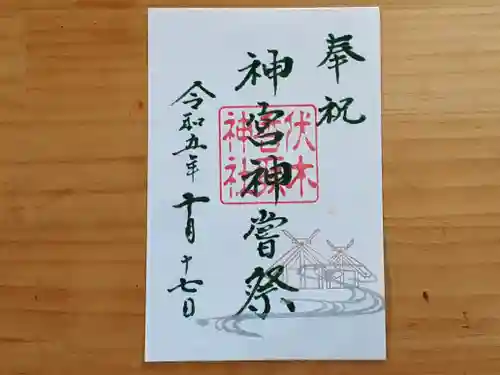 奉祝
神宮神嘗祭
令和五年十月十七日
伏木
神社